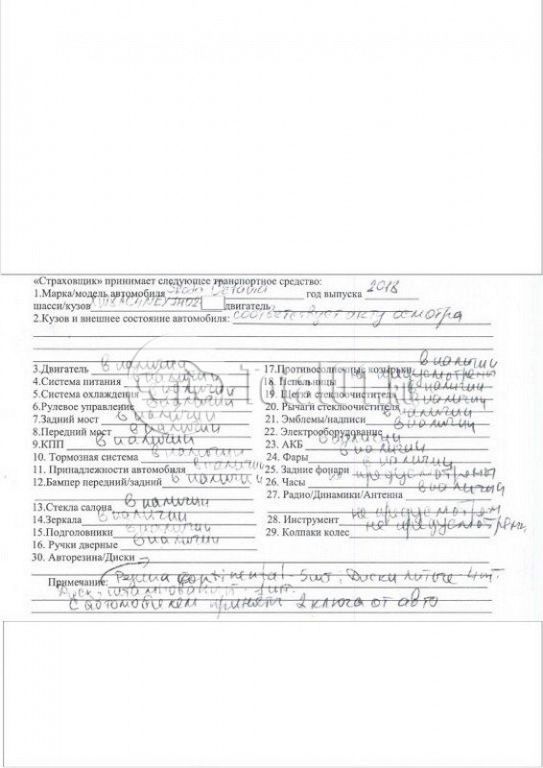 «Страховщик» принимает следующее транспортное средство:
1.Марка/модель автомобиля Skoda Octavia год выпуска 2018
шасси/кузов двигатель
2.Кузов и внешнее состояние автомобиля: соответствует акту осмотра
3.Двигатель в наличии 17.Противосолнечные козырьки в наличии
4.Система питания в наличии 18. Пепельницы не предусмотрены
5.Система охлаждения в наличии 19. Щетки стеклоочистителя в наличии
6.Рулевое управление в наличии 20. Рычаги стеклоочистителя в наличии
7.Задний мост в наличии 21. Эмблемы/надписи в наличии
8.Передний мост в наличии 22. Электрооборудование в наличии
9.КПП в наличии 23. АКБ в наличии
10. Тормозная система в наличии 24. Фары в наличии
11. Принадлежности автомобиля в наличии 25. Задние фонари в наличии
12.Бампер передний/задний в наличии 26. Часы не предусмотрены
27. Радио/Динамики/Антенна в наличии
13.Стекла салона в наличии
14.Зеркала в наличии 28. Инструмент не предусмотрен
15.Подголовники в наличии 29. Колпаки колес не предусмотрены
16. Ручки дверные в наличии
30. Авторезина/Диски
Примечание: Резина Continental - 5шт. Диски литые 4шт.
Диск штампованный 1шт.
С автомобилем приняты 2 ключа от авто